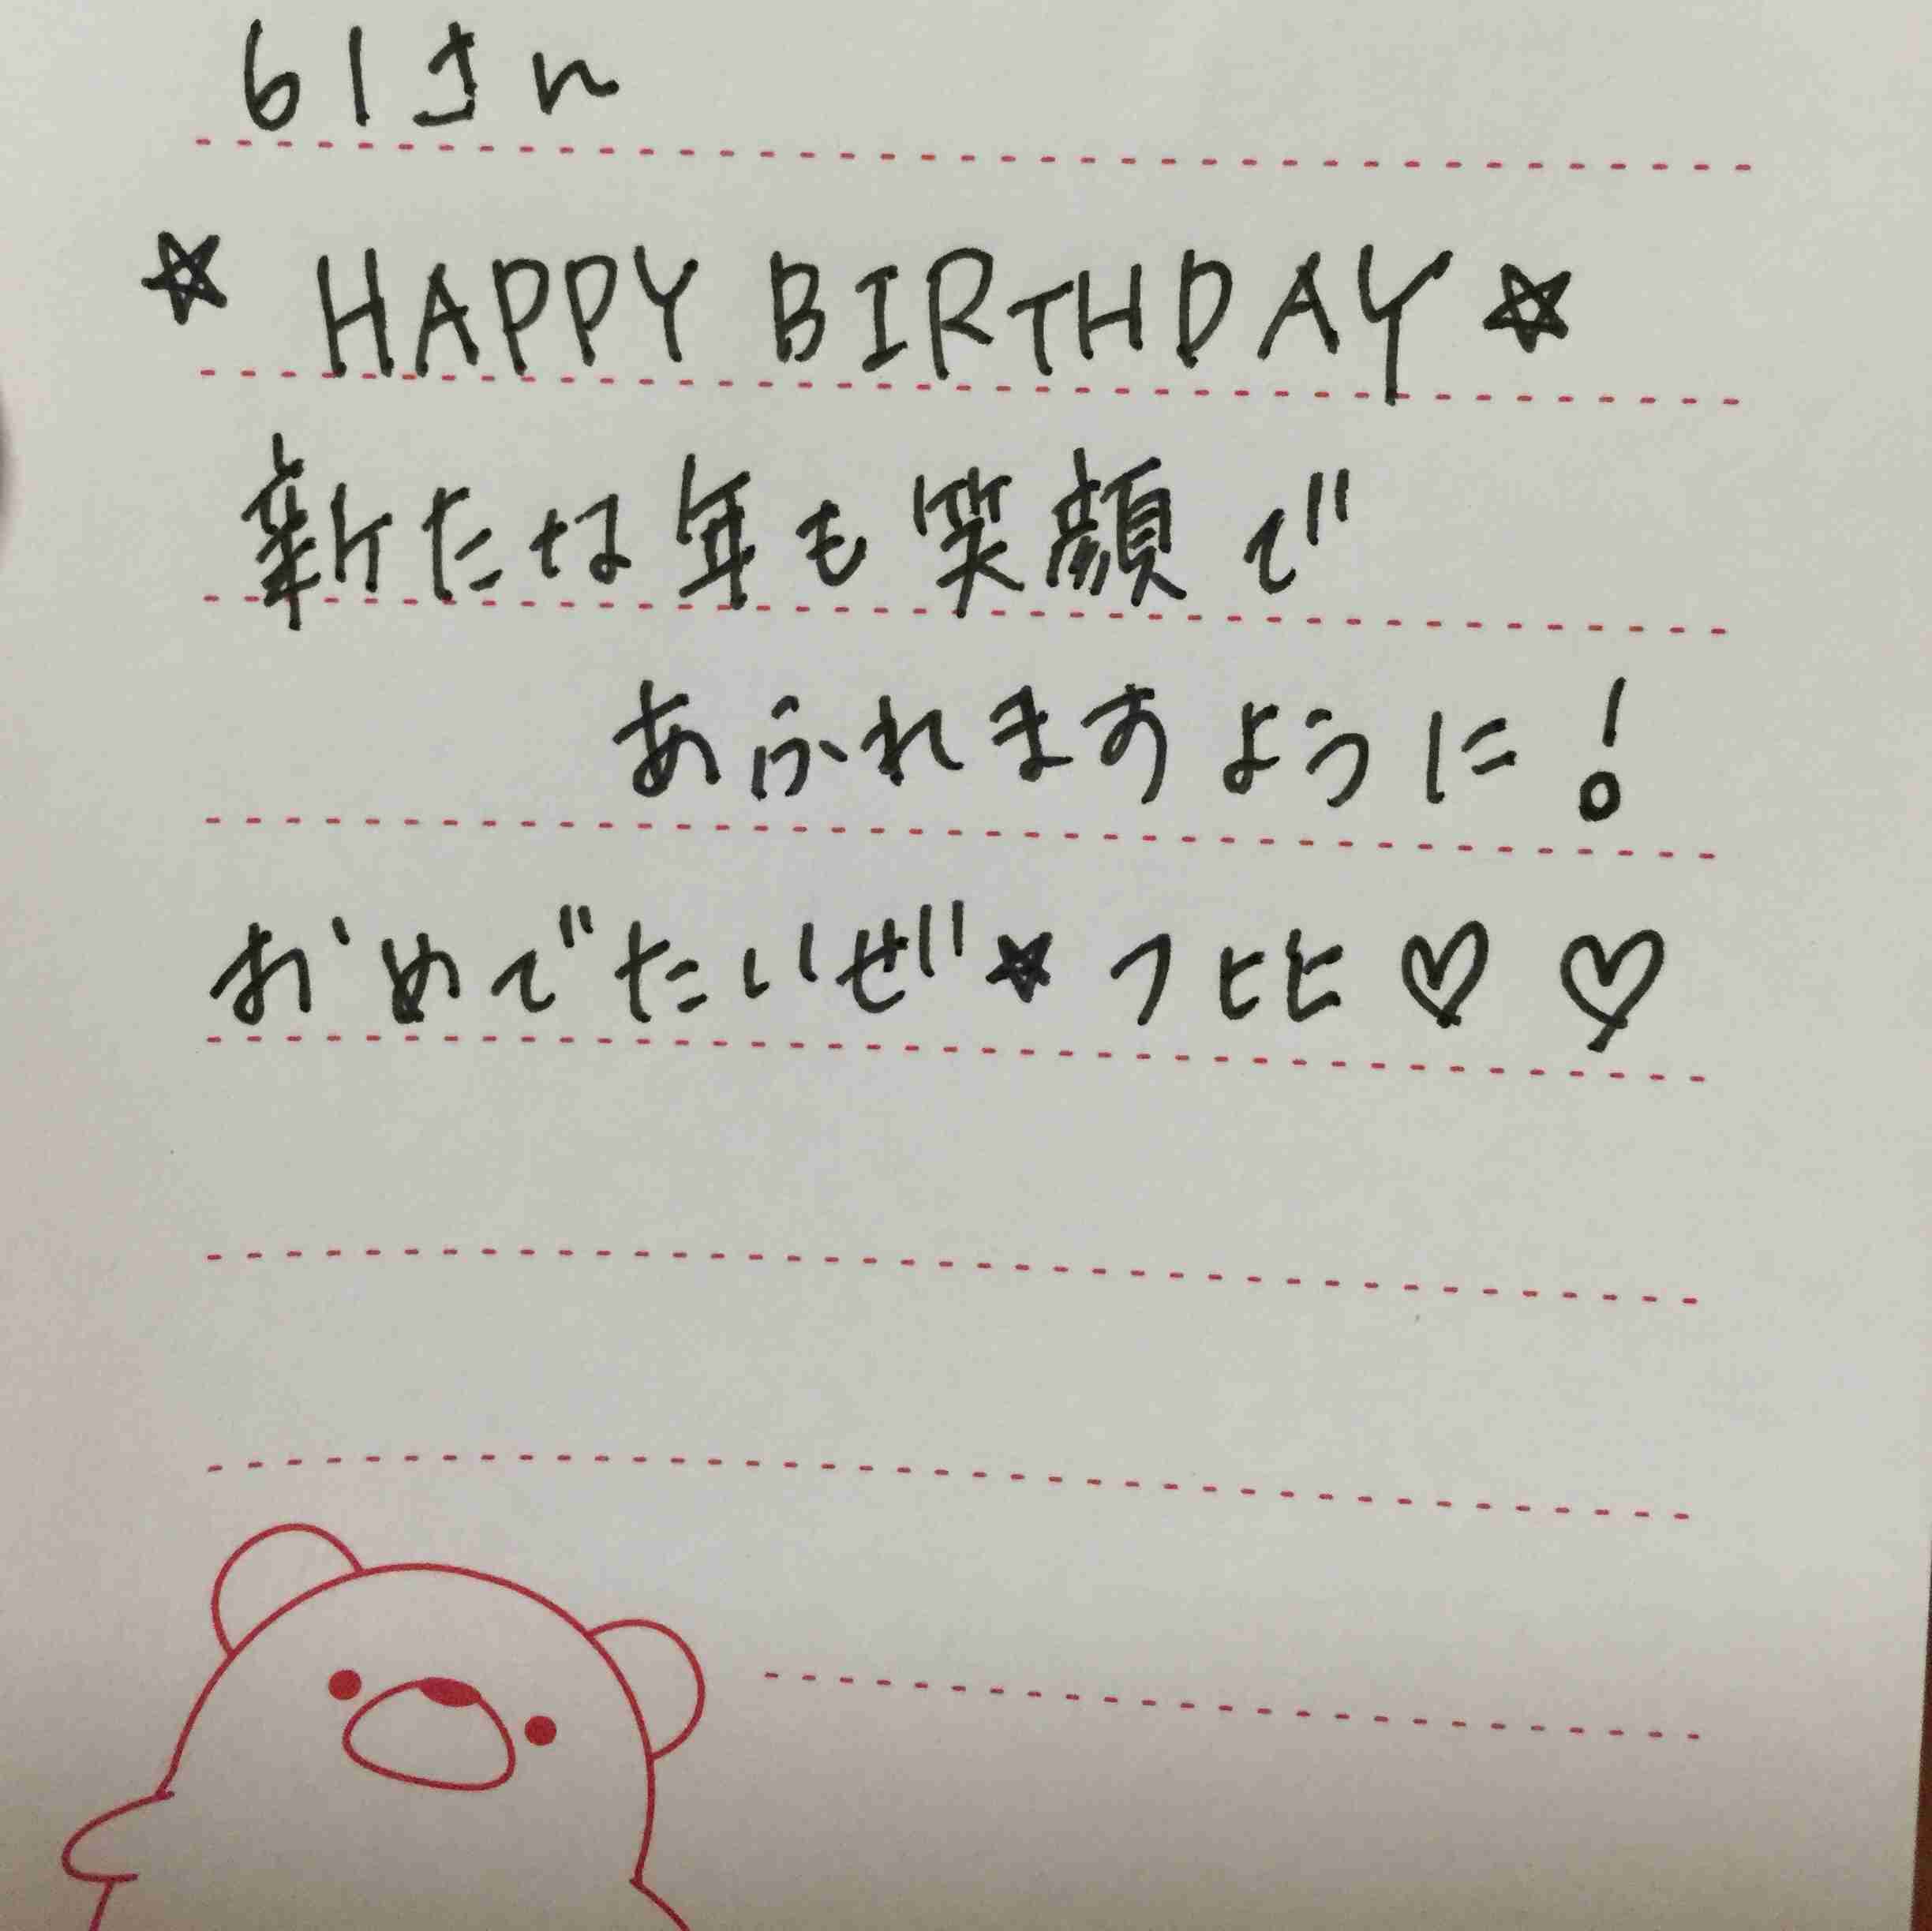 61さん
☆ HAPPY BIRTHDAY ☆
新たな年も笑顔で
あふれますように!
おめでたいぜ★フヒヒ♡♡